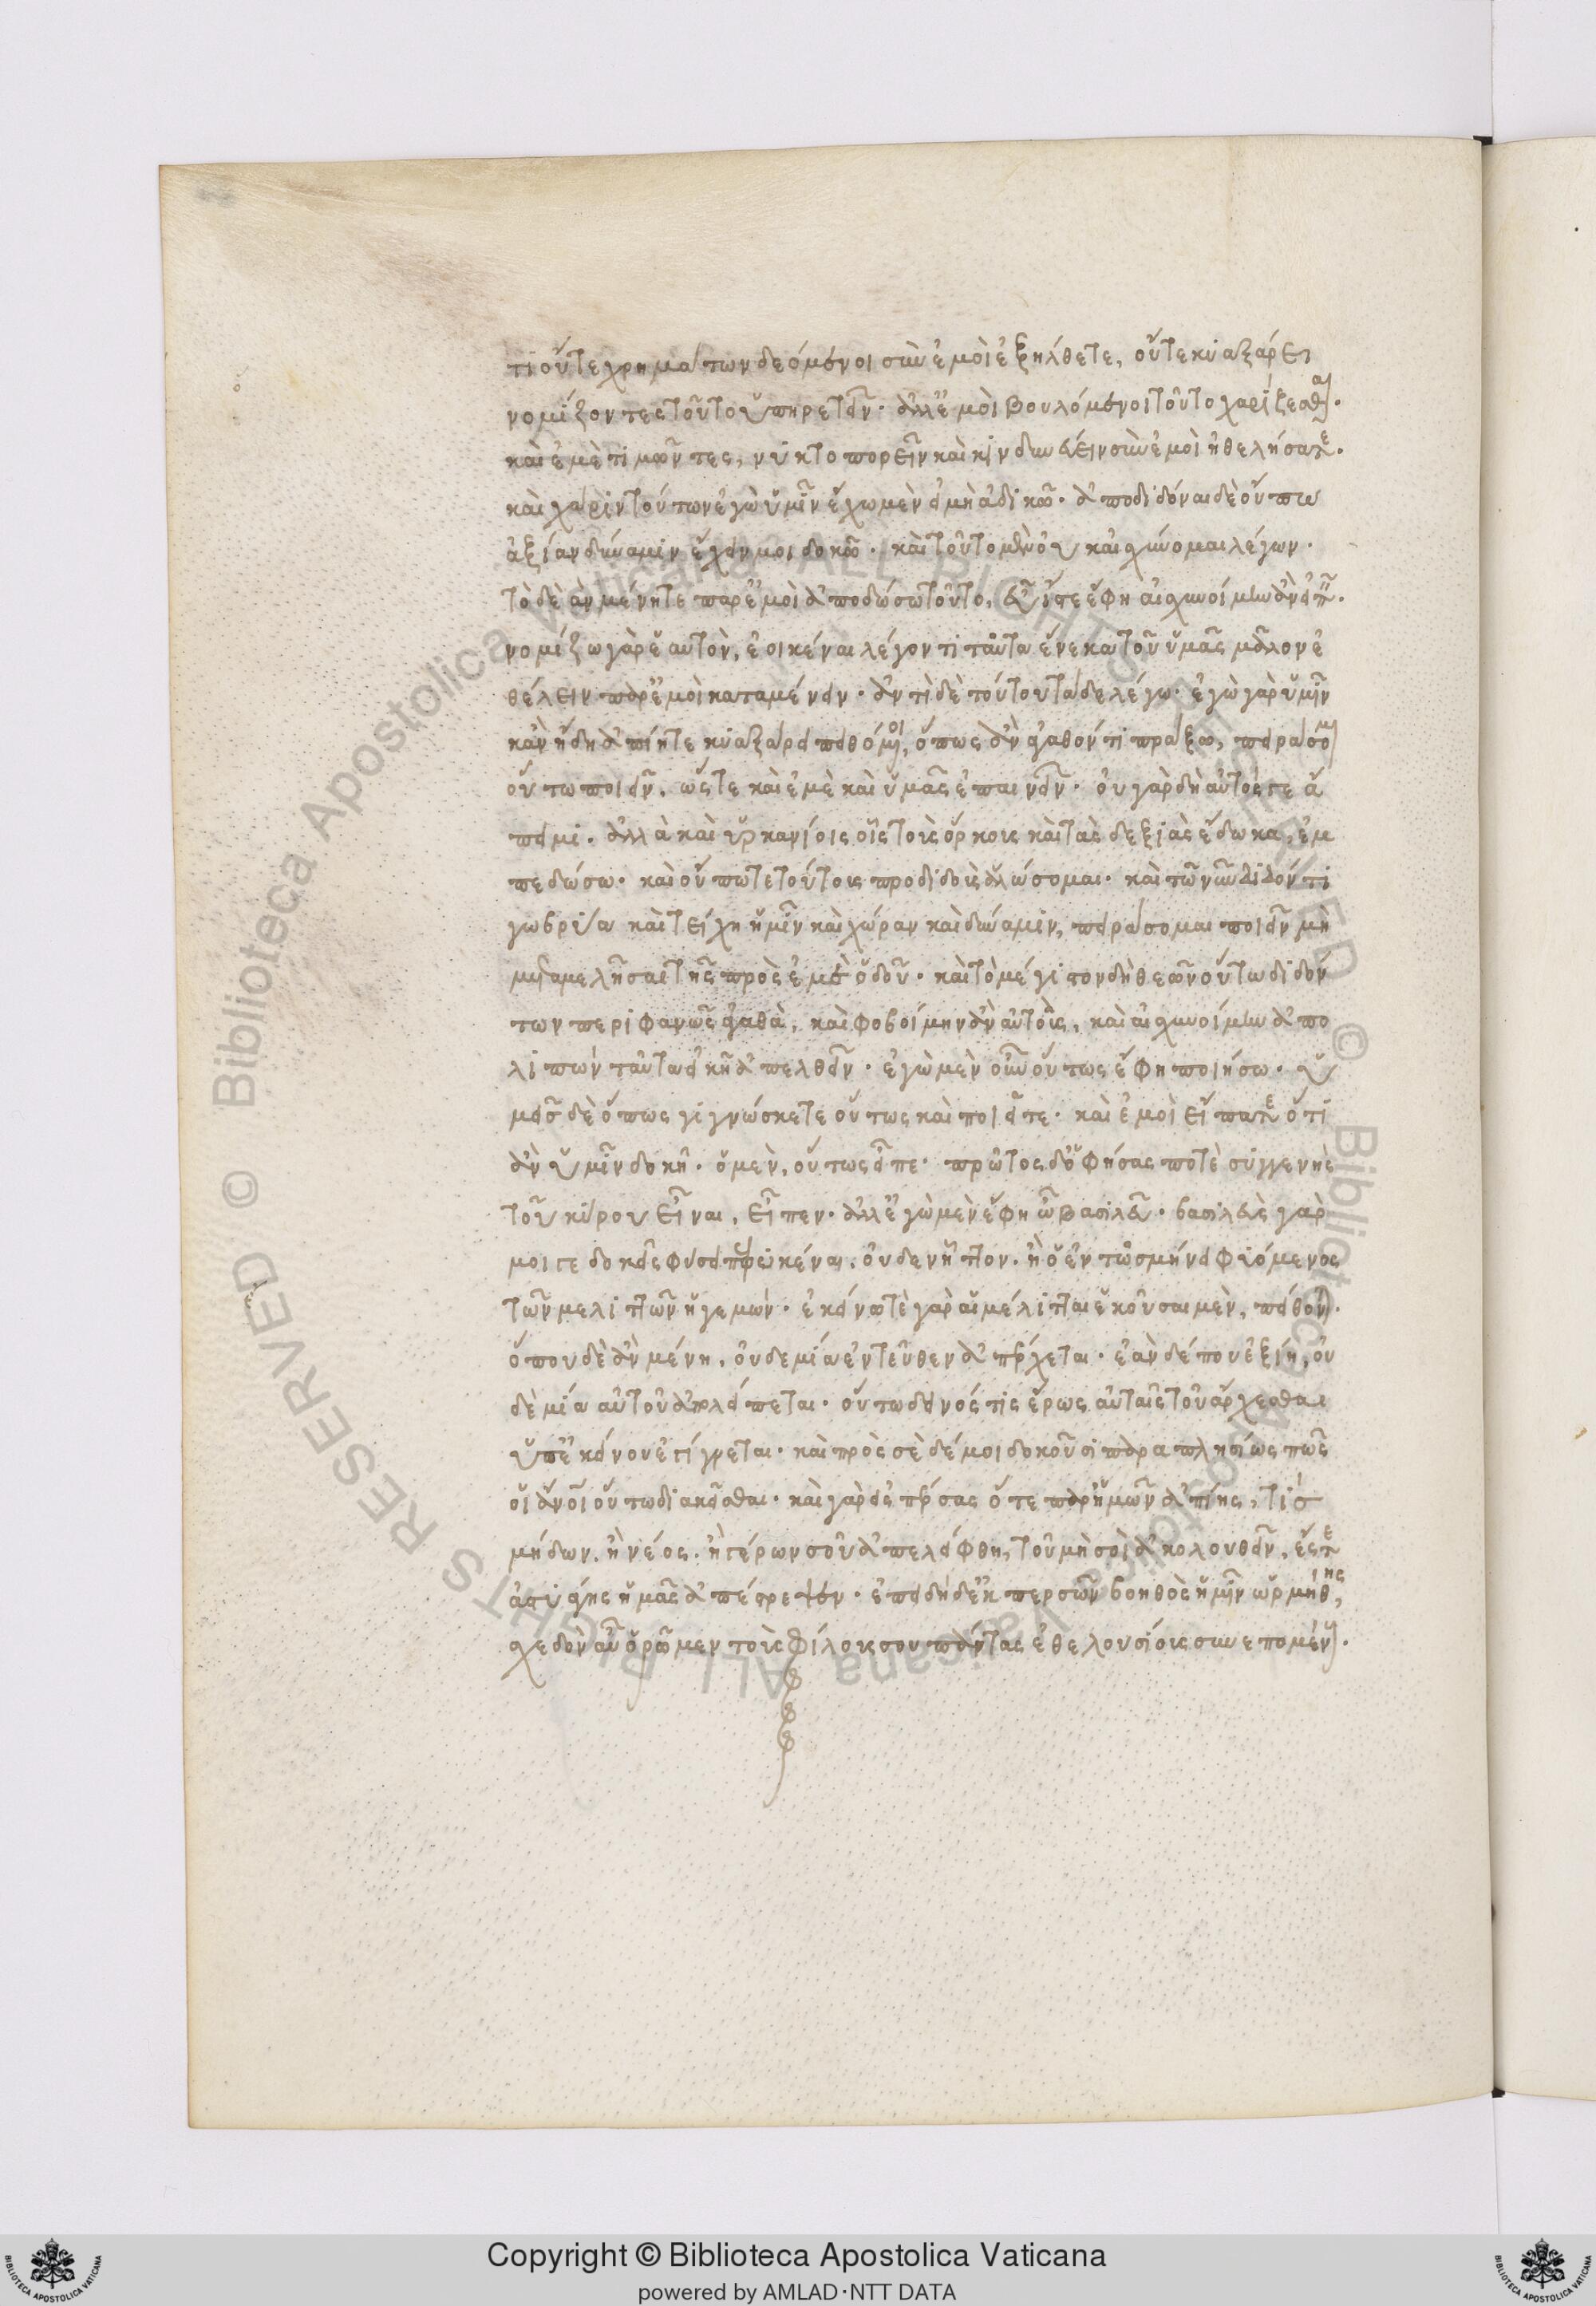 τι οὔτε χρημάτων δεόμενοι σὺν ἐμοὶ ἐξήλθετε, οὔτε κυαξάρει
νομίζοντες τοῦτο ὑπηρετεῖν· ἀλλ' ἐμοὶ βουλόμενοι τοῦτο χαρίζεσθαι·
καὶ ἐμὲ τιμῶντες, νυκτοπορεῖν καὶ κινδυνεύειν σὺν ἐμοὶ ἠθελήσατε.
καὶ χάριν τούτων ἐγὼ ὑμῖν ἔχω μὲν εἰ μὴ ἀδικῶ· ἀποδιδόναι δὲ οὔπω
ἀξίαν δύναμιν ἔχειν μοι δοκῶ· καὶ τοῦτο μὲν οὐκ αἰσχύνομαι λέγων·
τὸ δὲ ἂν μένητε παρ' ἐμοὶ ἀποδώσω τοῦτο, εὖ ἴστε ἔφη αἰσχυνοίμην ἂν εἰπεῖν·
νομίζω γὰρ ἑαυτὸν, ἐοικέναι λέγοντι ταῦτα ἕνεκα τοῦ ὑμᾶς μᾶλλον ἐ
θέλειν παρ' ἐμοὶ καταμένειν· ἀντὶ δὲ τούτου τάδε λέγω· ἐγὼ γὰρ ὑμῖν
κἂν ἤδη ἀπίητε κυαξάρει πειθόμενοι, ὅπως ἂν ἀγαθόν τι πράξω, πειράσομαι
οὕτω ποιεῖν, ὥστε καὶ ἐμὲ καὶ ὑμᾶς ἐπαινεῖν· οὐ γὰρ δὴ αὐτός γε ἄ
πειμι. ἀλλὰ καὶ ὑρκανίοις οἷς τοὺς ὅρκους καὶ τὰς δεξιὰς ἔδωκα, ἐμ
πεδώσω· καὶ οὔπωτε τούτοις προδιδοὺς ἁλώσομαι· καὶ τῶν νῦν διδόντι
γωβρύα καὶ τείχη ἡμῖν καὶ χώραν καὶ δύναμιν, πειράσομαι ποιεῖν μὴ
μεταμελῆσαι τῆς πρὸς ἐμὲ ὁδοῦ· καὶ τὸ μέγιστον δὴ θεῶν οὕτω διδόν
των περιφανῶς ἀγαθὰ, καὶ φοβοίμην ἂν αὐτοὺς, καὶ αἰσχυνοίμην ἀπο
λιπὼν ταῦτα εἰκῆ ἀπελθεῖν· ἐγὼ μὲν οὖν οὕτως ἔφη ποιήσω· ὑ
μεῖς δὲ ὅπως γιγνώσκετε οὕτως καὶ ποιεῖτε· καὶ ἐμοὶ εἴπατε ὅτι
ἂν ὑμῖν δοκῇ· ὁ μὲν, οὕτως εἶπε· πρῶτος δ' ὁ φήσας ποτὲ συγγενὴς
τοῦ κύρου εἶναι, εἶπεν· ἀλλ' ἐγὼ μὲν ἔφη ὦ βασιλεῦ· βασιλεὺς γὰρ
μοί γε δοκεῖς φύσει πεφυκέναι, οὐδὲν ἧττον. ἢ ὁ ἐν τῷ σμήνει φυόμενος
τῶν μελιττῶν ἡγεμών· ἐκείνω τε γὰρ αἱ μέλιτται ἑκοῦσαι μὲν, πείθονται·
ὅπου δὲ ἂν μένη, οὐδεμία ἐντεῦθεν ἀπέρχεται· ἐὰν δέ που ἐξίη, οὐ
δὲ μία αὐτοῦ ἀπολείπεται· οὕτω δεινός τις ἔρως αὐταῖς τοῦ ἄρχεσθαι
ὑπ' ἐκείνου ἐγγίγνεται· καὶ πρὸς σὲ δέ μοι δοκοῦσι παραπλησίως πως
οἱ ἄνθρωποι οὕτω διακεῖσθαι· καὶ γὰρ εἰς πέρσας ὅτε παρ' ἡμῶν ἀπίης, τίς
μήδων. ἢ νέος. ἢ γέρων σοῦ ἀπελείφθη, τοῦ μὴ σοὶ ἀκολουθεῖν, ἔστε
ἀστυάγης ἡμᾶς ἀπέστρεψεν· ἐπειδὴ δ' ἐκ περσῶν βοηθὸς ἡμῖν ὡρμήθης,
σχεδὸν αὖ ὁρῶμεν τοὺς φίλους σου πάντας ἐθελουσίους συνεπομένους.